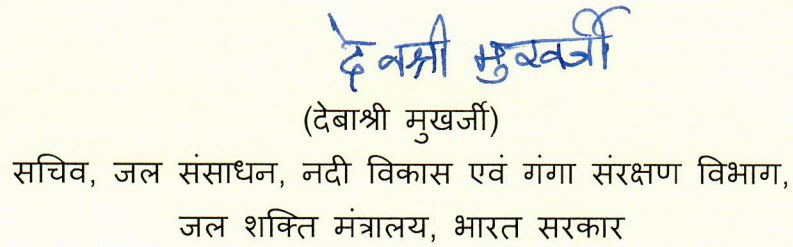 देवश्री मुखर्जी
(देबाश्री मुखर्जी)
सचिव, जल संसाधन, नदी विकास एवं गंगा संरक्षण विभाग,
जल शक्ति मंत्रालय, भारत सरकार